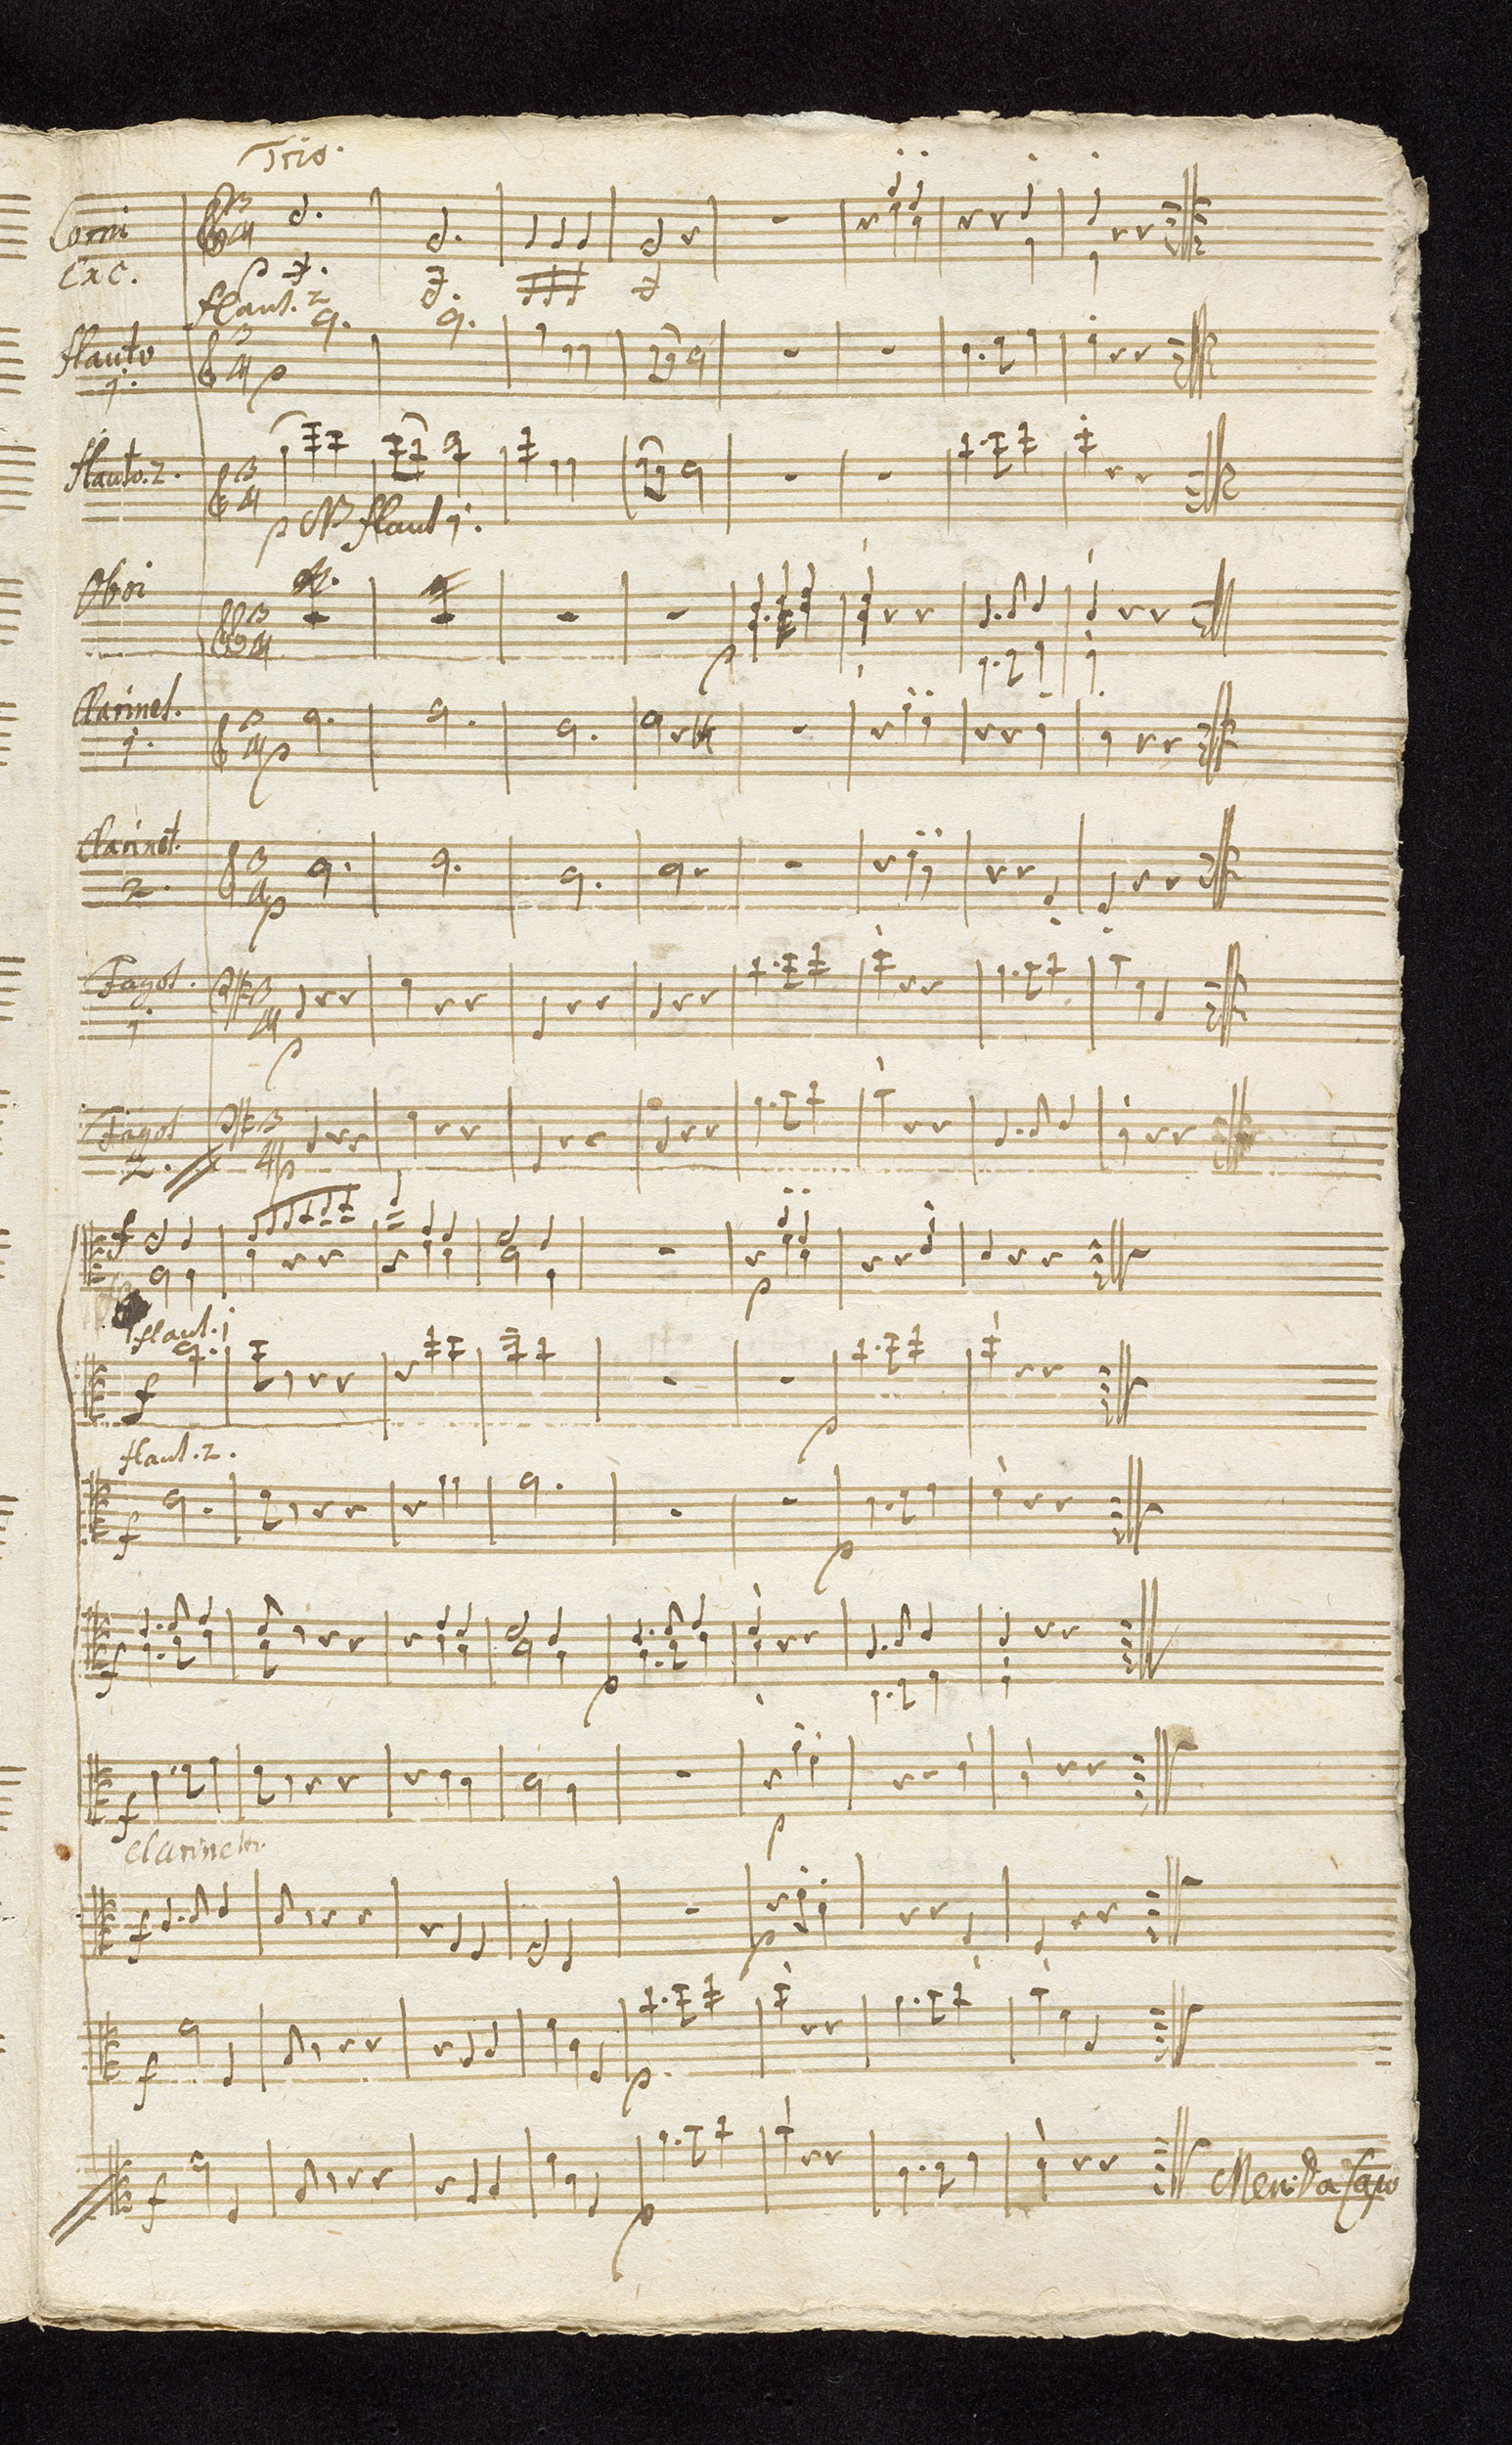 Trio.
Corni
Ex C.
p
flaut. 2
flauto
1.
p
flauto. 2.
p NB flaut 1.
Oboi
p
Clarinet.
1.
p
Clarinet.
2.
p
Fagot.
1.
p
Fagot
2.
p
f
p
flaut. 1
f
p
flaut. 2.
f
p
f
p
f
p
Clarinetti
f
p
f
p.
f
p
Men: Da Capo